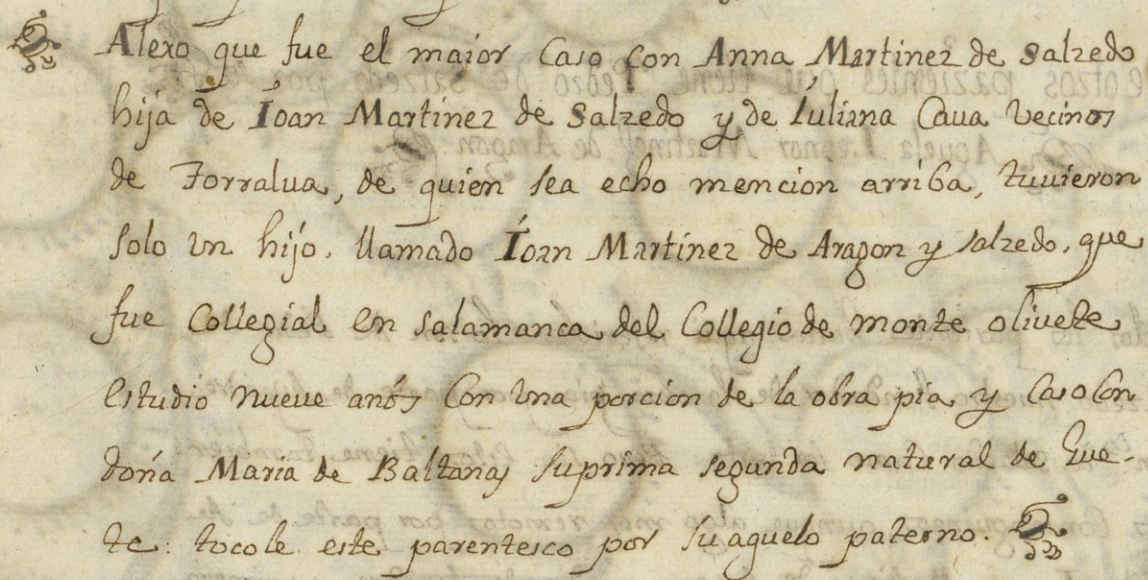 Alexo que fue el maior Caso con Anna Martinez de Salzedo
hija de Íoan Martinez de Salzedo y de Iuliana Caua vecinos
de Torralua, de quien sea echo mencion arriba, tuvieron
solo vn hijo. llamado Íoan Martinez de Aragon y salzedo, que
fue Collegial en salamanca del Collegio de monte oliuete
estudio nueue años Con vna porcion de la obra pia y Caso Con
doña Maria de Baltanas su prima segunda natural de Hue-
te: tocole este parentesco por su aguelo paterno.